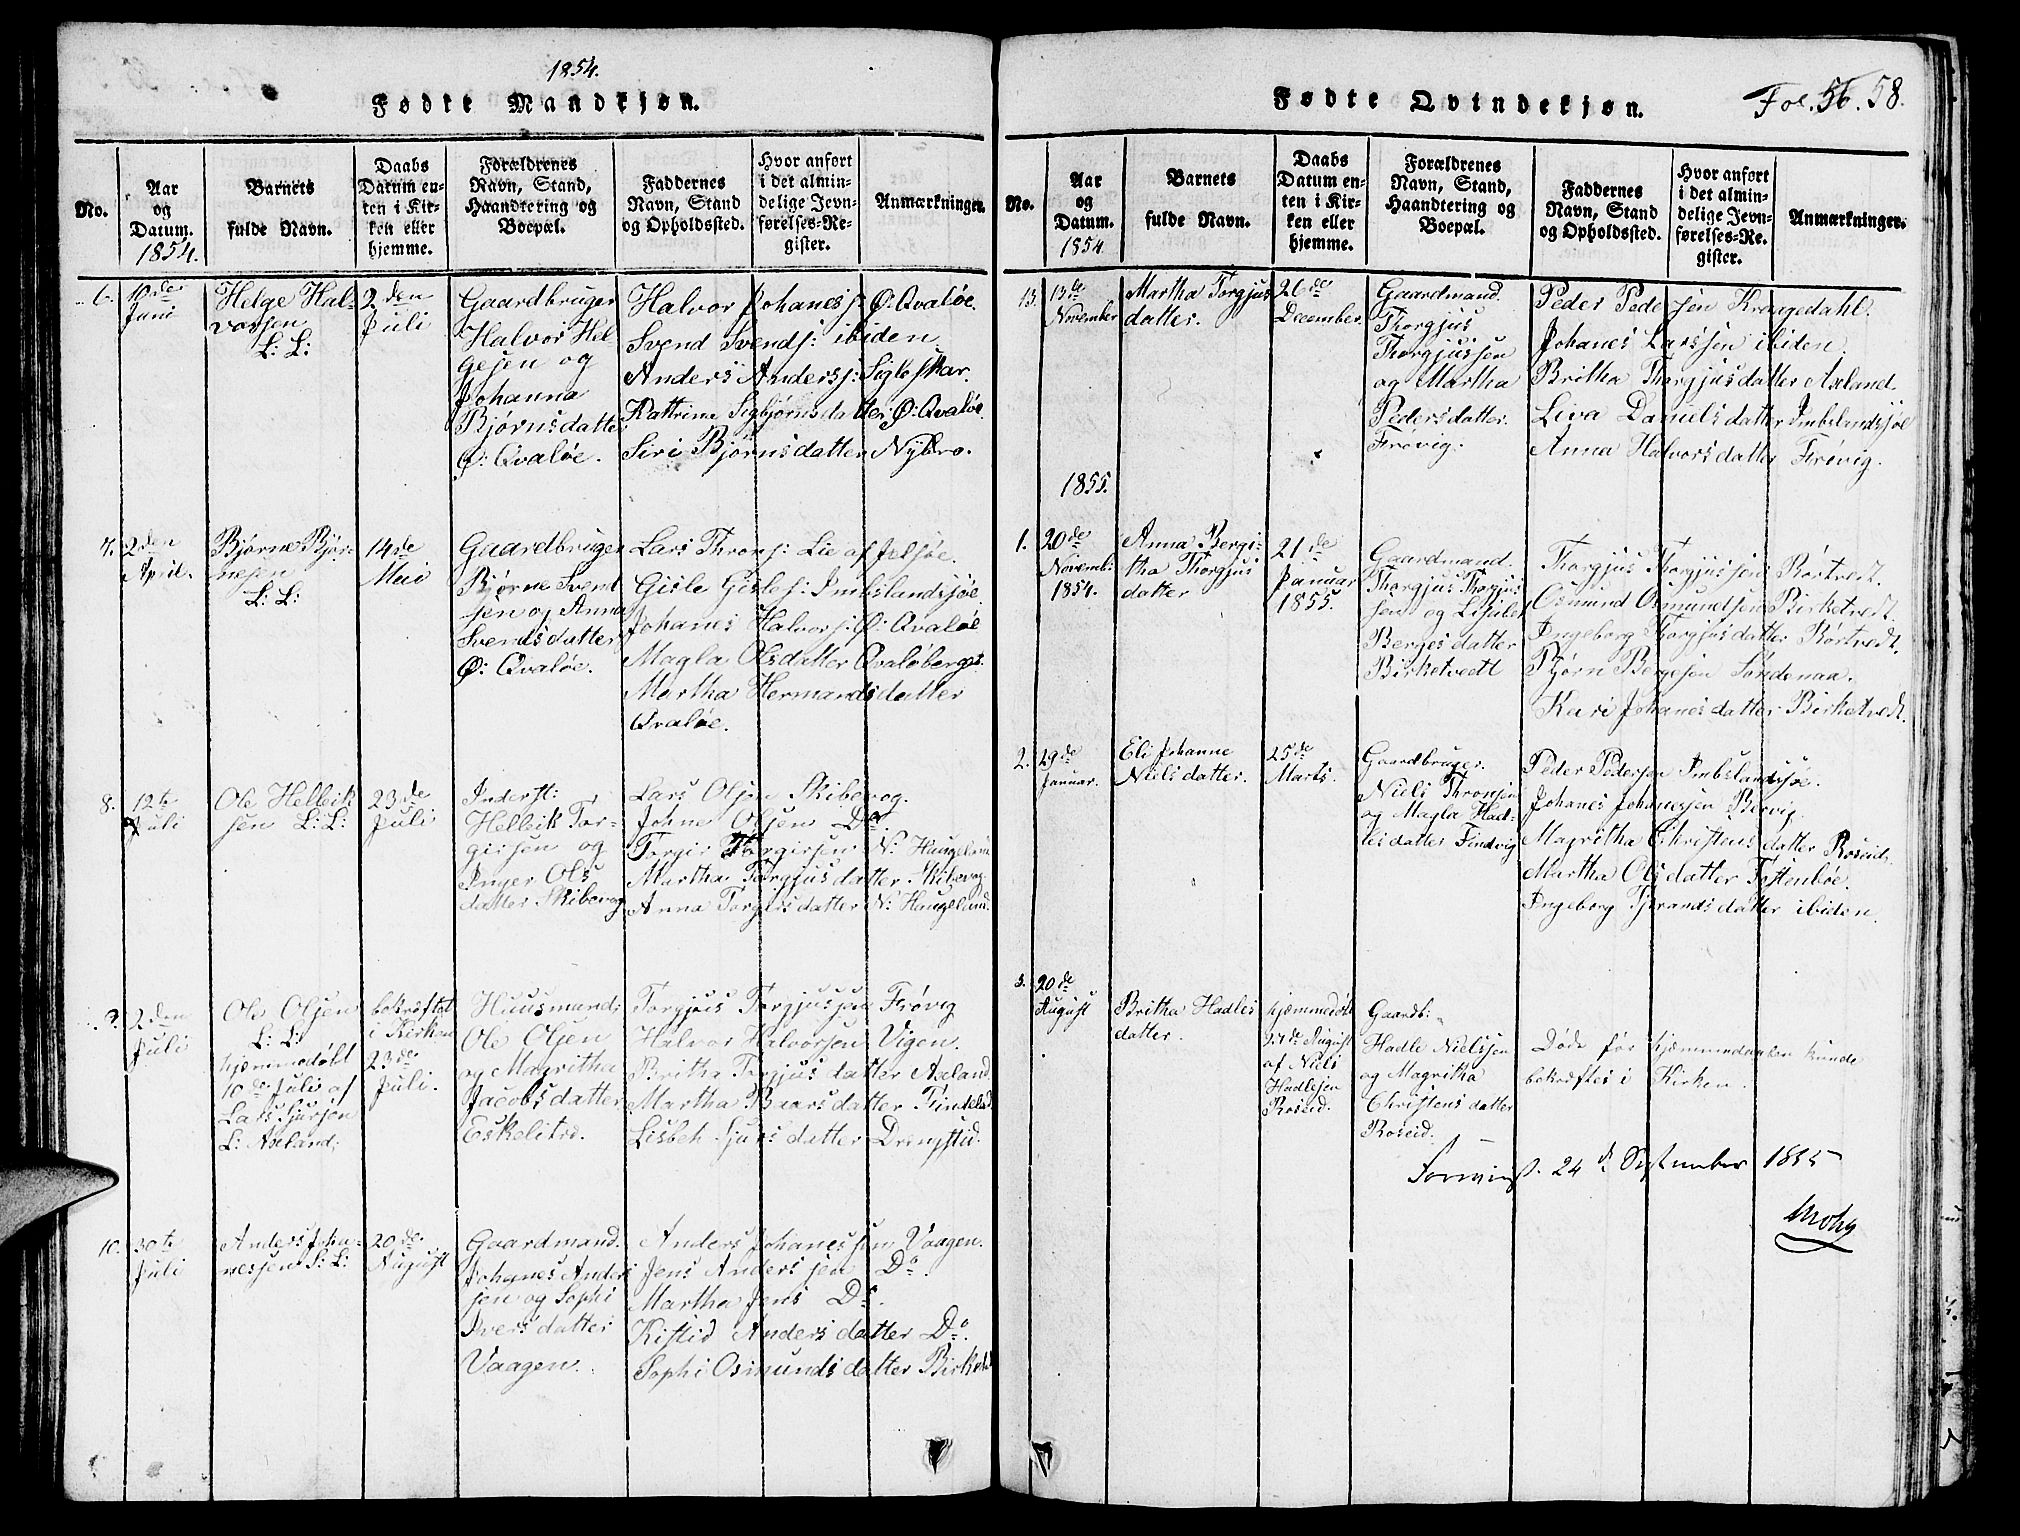 1854.
Fødte Mandkjøn.
No.
Aar og Datum. 1854.
Barnets fulde Navn.
Daabs Datum enten i Kirken eller hjemme.
Forældrenes Navn, Stand, Haandtering og Boepæl.
Faddernes Navn, Stand og Opholdssted.
Hvor anført i det almindelige Jevnførelses-Register.
Anmærkninger.
6.
10de Juni
Helge Halvorsen
L: L:
2den Juli
Gaardbruger
Halvor Helgesen og
Johanna
Bjørnsdatter
Ø: Qvaløe.
Halvor Johanesf: Ø: Qvaløe.
Svend Svendf: ibiden.
Anders Andersf: Sigleskar.
Kattrine Sigbjørnsdatter Ø: Qvaløe.
Siri Bjørnsdatter Nybro.
7.
2den April.
Bjørne Bjørnesen
L: L:
14de Mai
Gaardbruger
Bjørne Svendsen og Anna
Svendsdatter
Ø: Qvaløe.
Lars Thronf: Lie af Jelsøe.
Gisle Gislef: Imbslandsjøe.
Johanes Halvorf: Ø: Qvaløe
Magla Olsdatter Qvaløberget.
Martha Hermandsdatter
Qvaløe.
8.
12te Juli
Ole Helleiksen L: L:
23de Juli
Inderst:
Helleik Torgirsen og
Inger Olsdatter Skibevog
Lars Olsen Skibevog.
Johne Olsen Do
Torgir Torgirsen N: Haugeland
Martha Torgjusdatter Skibevog
Anna Torgirsdatter N: Haugeland.
9.
2den Juli
Ole Olsen
L: L:
hjemmedøbt
10de Juli af
Lars Sjursen
L: Axland:
bekræftet
i Kirken
23de
Juli.
Huusmand:
Ole Olsen
og Magritha
Jacobsdatter
Eskelitrd.
Torgjus Torgjussen Frøvig
Halvor Halvorsen Vigen.
Britha Torgjusdatter Axland.
Martha Baarsdatter
Lisbeth Sjursdatter
10.
30te Juli
Anders Johanessen L: L:
20de August
Gaardmand.
Johanes Andersen og Sophi
Iversdatter
Vaagen.
Anders Johanessen Vaagen.
Jens Andersen Do.
Martha Jens Do.
Kistid Andersdatter Do.
Sophi Osmundsdatter
Fødte Qvindekjøn.
Fol. 56. 58.
No.
Aar og Datum. 1854
Barnets fulde Navn.
Daabs Datum enten i Kirken eller hjemme.
Forældrenes Navn, Stand, Haandtering og Boepæl.
Faddernes Navn, Stand og Opholdssted.
Hvor anført i det almindelige Jevnførelses-Register.
Anmærkninger.
13.
13de November
Martha Torgjusdatter.
26de December.
Gaardmand.
Thorgjus
Thorgjussen
og Martha
Pedersdatter.
Frøvig.
Peder Pedersen Krangedahl.
Johanes Larssen ibiden.
Britha Thorgjusdatter Axland.
Liva Danielsdatter Imbslandsjøe
Anna Halvorsdatter Frøvig.
1855.
1.
20de Novemb: 1854.
Anna Bergitha Thorgjusdatter
21de Januar 1855.
Gaardmand.
Thorgjus Thorgjussen og Lisabet
Bergesdatter
Birketvedt
Thorgjus Thorgjussen Rørtvedt.
Osmund Osmundsen Birketvedt.
Ingeborg Thorgjusdatter Rørtvedt.
Bjørn Bergesen Søndenaa.
Kari Johanesdatter Birketvedt.
2.
29de Januar.
Eli Johanne
Nielsdatter.
25de Marts.
Gaardbruger.
Niels Thronsen
og Magla Hadlesdatter Findvig
Peder Pedersen Imbslandsjøe.
Johanes Johanessen Bervig.
Magritha Christensdatter Roseid.
Martha Olsdatter Tostenbøe.
Ingeborg Tjerandsdatter ibiden.
3.
20de August
Britha Hadlesdatter.
hjemmedøbt
af Niels
Hadlesen
Roseid.
Gaardb:
Hadle Nielssen
og Magritha
Christensdatter
Roseid.
Døde før hjemmedaaben kunde
bekræftes i Kirken.
24de September 1855